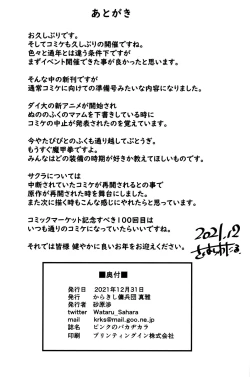 あとがき
お久しぶりです。
そしてコミケも久しぶりの開催ですね。
色々と通年とは違う条件下ですが
まずイベント開催できた事が良かったと思います。
そんな中の新刊ですが
通常コミケに向けての準備号みたいな内容になりました。
ダイ大の新アニメが開始され
ぬののふくのマァムを下書きしている時に
コミケの中止が発表されたのを覚えています。
今やたびびとのふくも通り越してぶとうぎ。
もうすぐ魔甲拳ですよ。
みんなはどの装備の時期が好きか教えてほしいものです。
サクラについては
中断されていたコミケが再開されるとの事で
原作が再開された時を舞台にしました。
また次に描く時もこんな感じにやれたらと思っています。
コミックマーケット記念すべき100回目は
いつも通りのコミケになっていたらいいですね。
それでは皆様 健やかに良いお年をお迎えください。
2021.12
■奥付■
発行日 2021年12月31日
発行 からきし傭兵団 真雅
発行者 砂原渉
twitter Wataru_Sahara
mail krks@mail.goo.ne.jp
誌名 ピンクのバカヂカラ
印刷 プリンティングイン株式会社